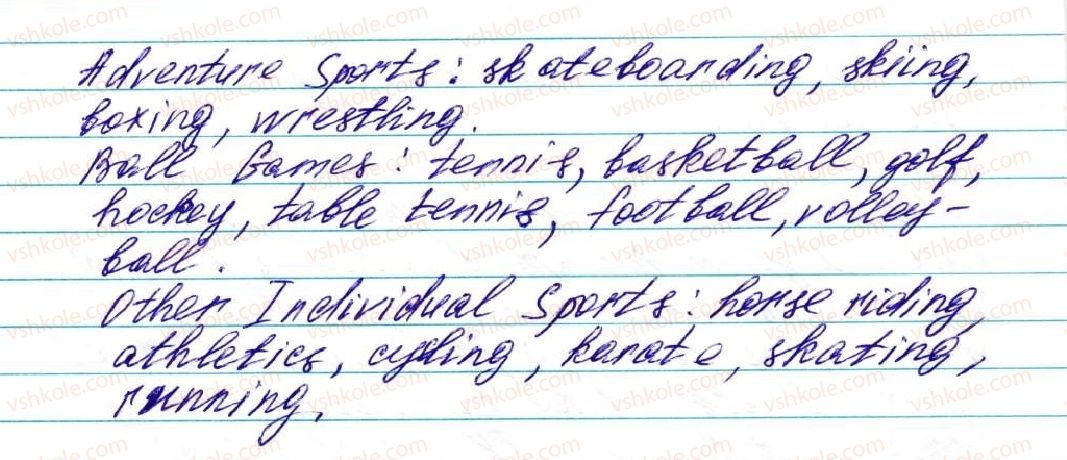 Adventure Sports: skateboarding, skiing,
boxing, wrestling.
Ball Games: tennis, basketball, golf,
hockey, table tennis, football, volley-
ball.
Other Individual Sports: horse riding,
athletics, cycling, karate, skating,
running.